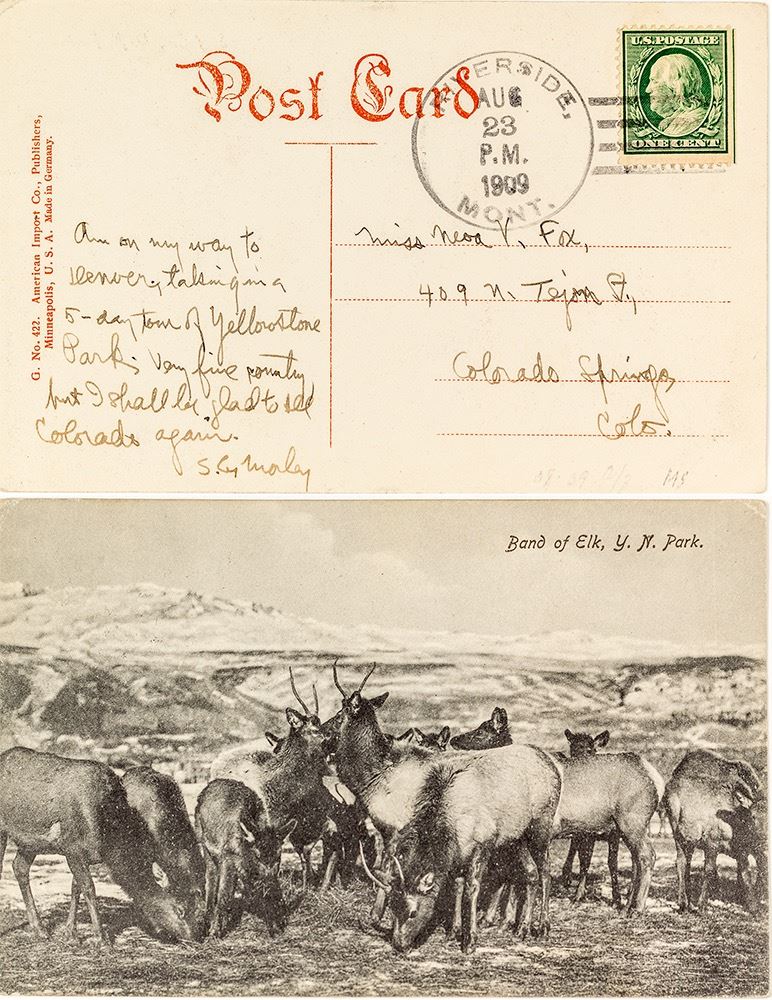 Post Card
U.S. POSTAGE
ONE CENT
RIVERSIDE,
AUG
23
P.M.
1909
MONT.
G. No. 422. American Import Co., Publishers,
Minneapolis, U. S. A. Made in Germany.
Am on my way to
Denver, taking in a
5-day tour of Yellowstone
Park. Very fine country
but I shall be glad to see
Colorado again.
S. G. Morley
Miss Neva V. Fox,
409 N. Tejon St.,
Colorado Springs,
Colo.
Band of Elk, Y. N. Park.